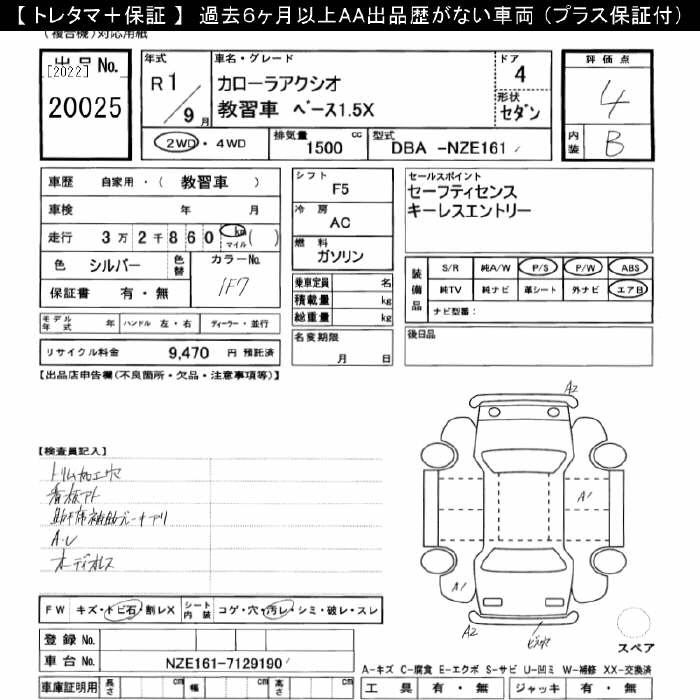 【 トレタマ＋保証 】 過去6ヶ月以上AA出品歴がない車両（プラス保証付）
(複合機)対応用紙
出品No.
[2022]
20025
年式
R1/9月
車名・グレード
カローラアクシオ
教習車 ベース1.5X
ドア
4
形状
セダン
評価点
4
内装
B
2WD・4WD
排気量
1500 cc
型式
DBA -NZE161
車歴 自家用・( 教習車 )
車検 年 月
走行 3万2千860 km マイル ( )
色 シルバー 色替 カラーNo. 1F7
保証書 有・無
モデル年式 年 ハンドル 左・右 ディーラー・並行
リサイクル料金 9,470 円 預託済
シフト
F5
冷房
AC
燃料
ガソリン
乗車定員 名
積載量 kg
総重量 kg
名変期限
月 日
セールスポイント
セーフティセンス
キーレスエントリー
装備品
S/R 純A/W P/S P/W ABS
純TV 純ナビ 革シート 外ナビ エアB
ナビ型番：
後日品
【出品店申告欄(不良箇所・欠品・注意事項等)】
【検査員記入】
トリム加工穴
看板アト
助手席補助ブレーキアリ
A・U
オーディオレス
A2
A1
A1
A2
FW キズ・トビ石・割レX シート内装 コゲ・穴・汚レ・シミ・破レ・スレ
登録No.
車台No. NZE161-7129190
車庫証明用 長さ cm 幅 cm 高さ cm
スペア
A-キズ C-腐食 E-エクボ S-サビ U-凹ミ W-補修 XX-交換済
工具 有・無 ジャッキ 有・無